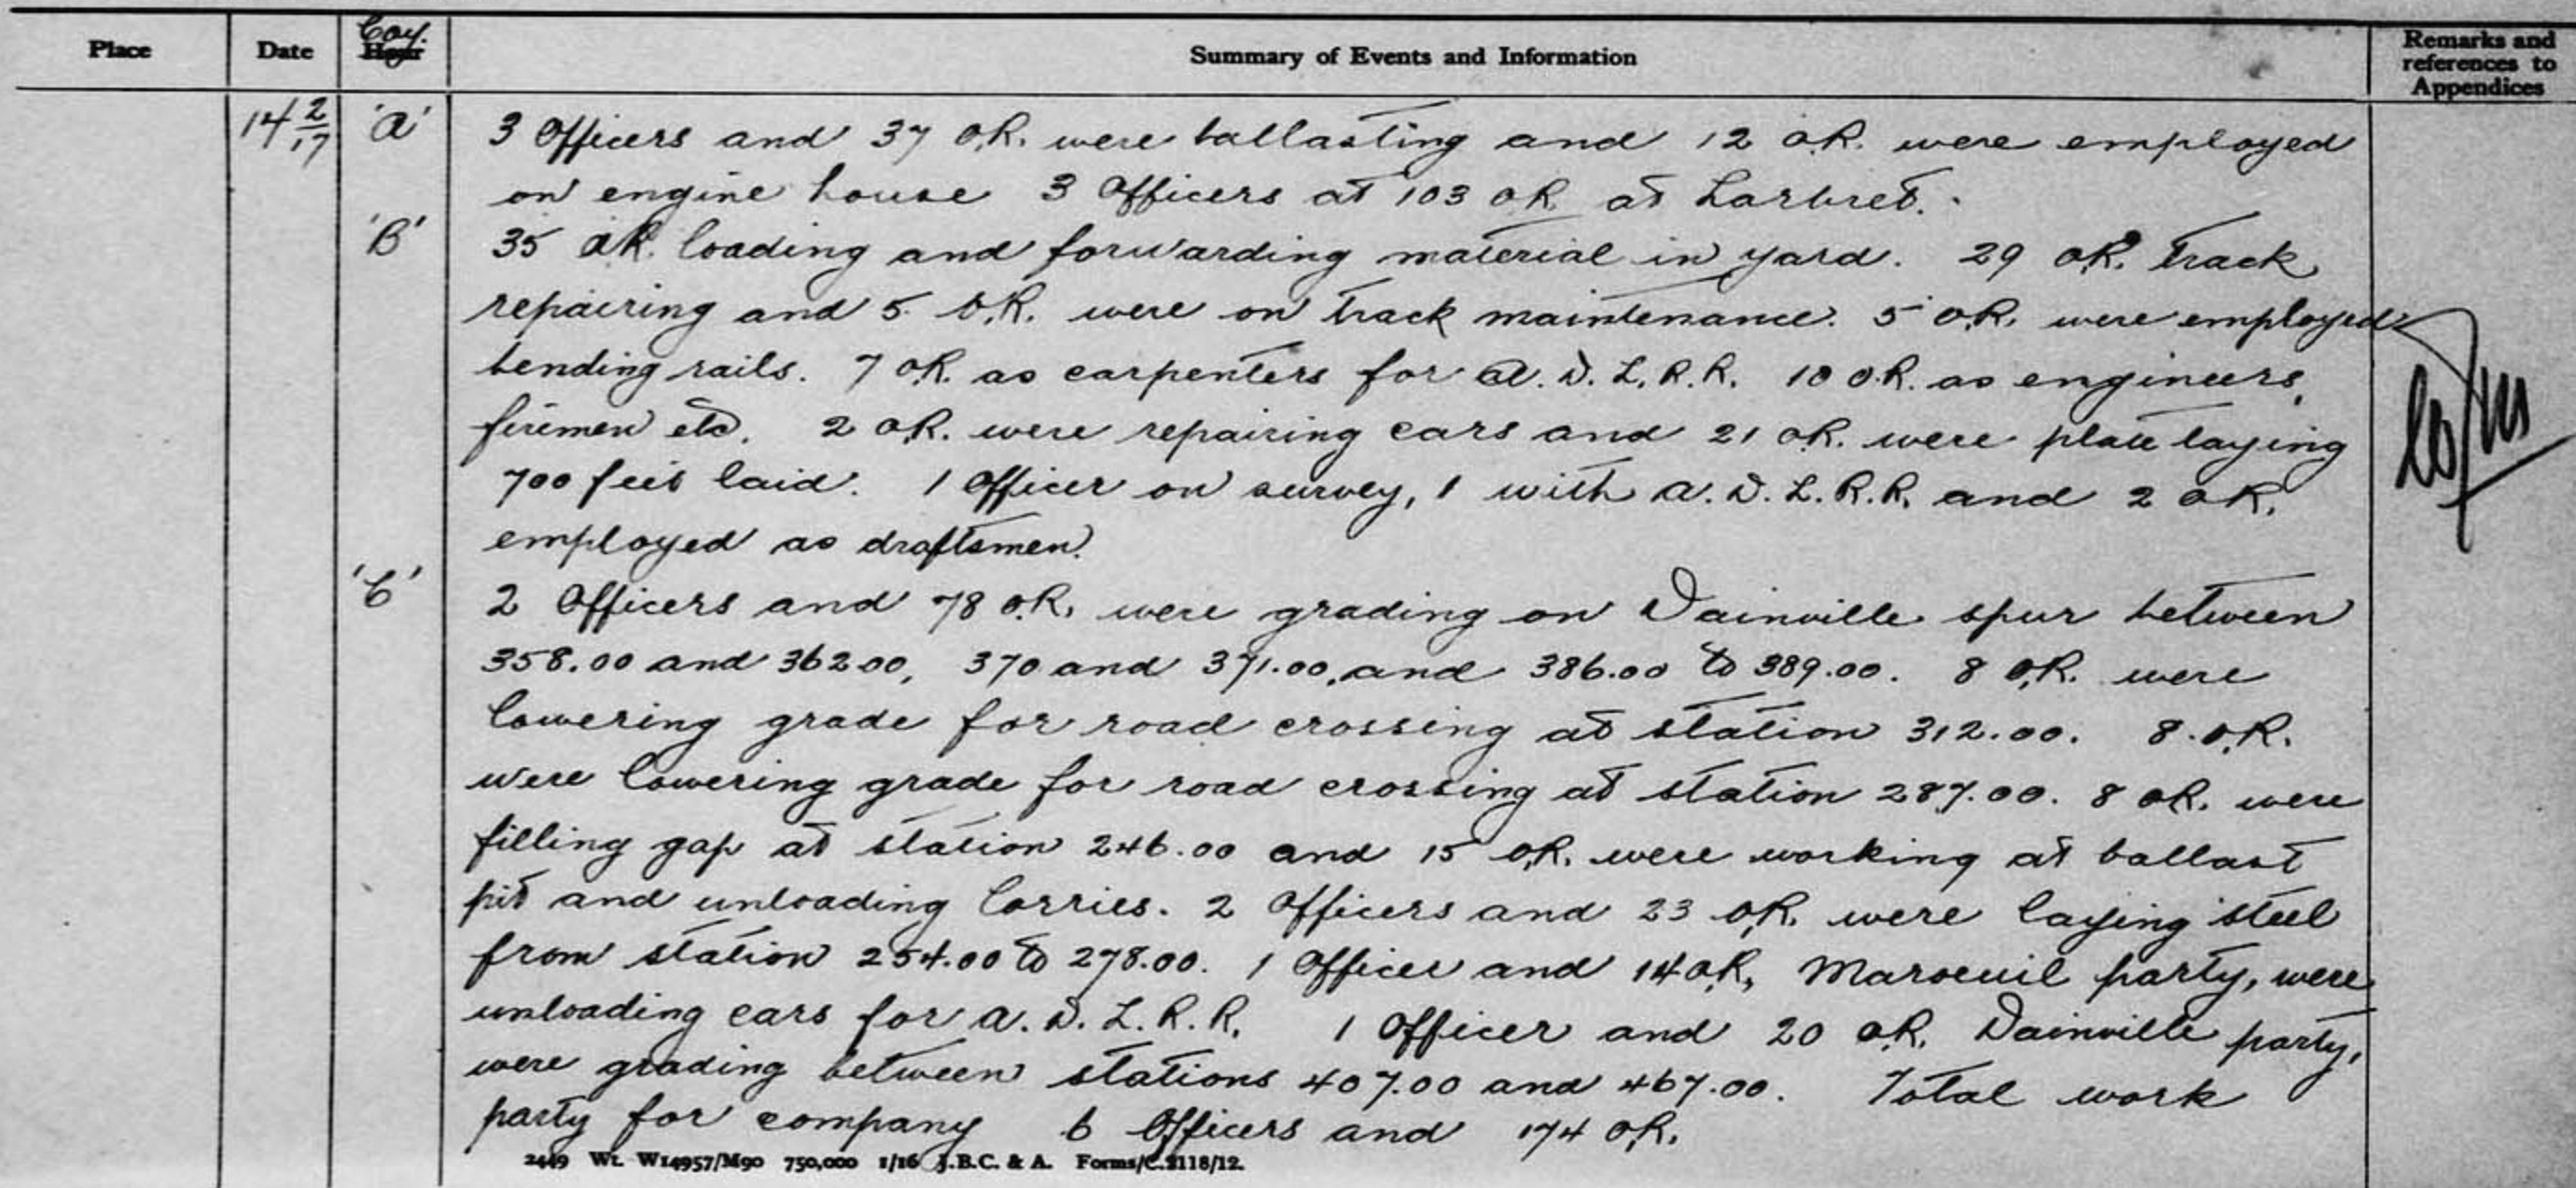 Place Date Coy. Hour Summary of Events and Information Remarks and references to Appendices
14 2/17 'A' 3 Officers and 37 O.R. were ballasting and 12 O.R. were employed
on engine house 3 Officers at 103 O.R. at Larbret.
'B' 35 O.R. loading and forwarding material in yard. 29 O.R. track
repairing and 5 O.R. were on track maintenance. 5 O.R. were employed
bending rails. 7 O.R. as carpenters for A.D.L.R.R. 10 O.R. as engineers,
firemen etc. 2 O.R. were repairing cars and 21 O.R. were plate laying
700 feet laid. 1 Officer on survey, 1 with A.D.L.R.R. and 2 O.R.
employed as draftsmen.
'C' 2 Officers and 78 O.R. were grading on Dainville spur between
358.00 and 362.00, 370 and 371.00, and 386.00 to 389.00. 8 O.R. were
lowering grade for road crossing at station 312.00. 8 O.R.
were lowering grade for road crossing at station 287.00. 8 O.R. were
filling gap at station 246.00 and 15 O.R. were working at ballast
pit and unloading lorries. 2 Officers and 23 O.R. were laying steel
from station 254.00 to 278.00. 1 Officer and 14 O.R., Maroeuil party, were
unloading cars for A.D.L.R.R. 1 Officer and 20 O.R. Dainville party,
were grading between stations 407.00 and 467.00. Total work
party for company 6 Officers and 174 O.R.
2449 Wt. W14957/M90 750,000 1/16 J.B.C. & A. Forms/C.2118/12.